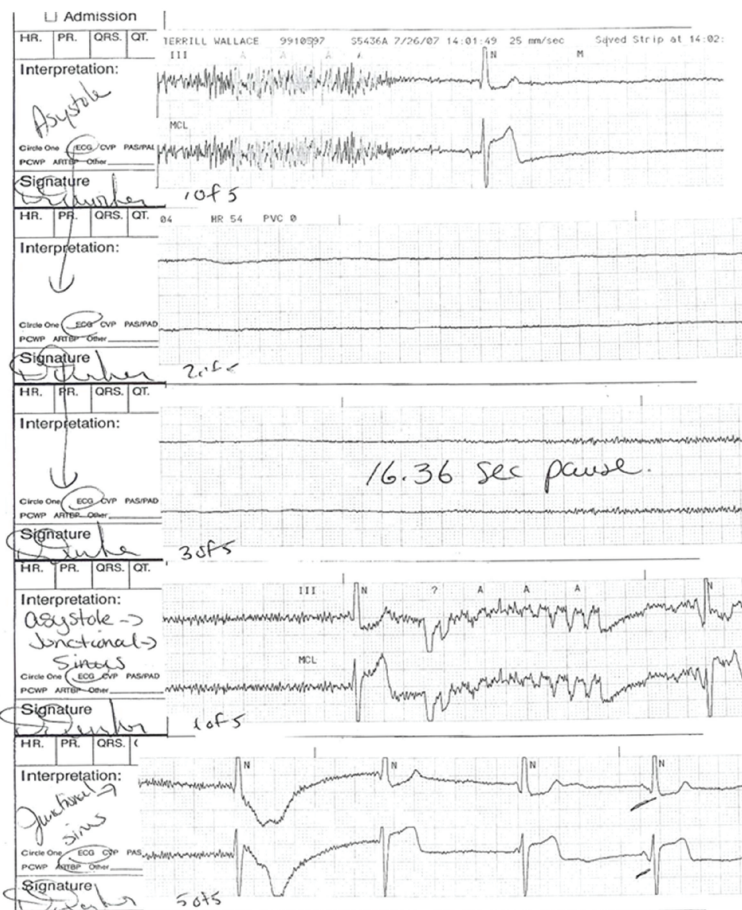 Admission
HR. PR. QRS. QT.
TERRILL WALLACE 9910597 S5436A 7/26/07 14:01:49 25 mm/sec Saved Strip at 14:02:
III A A A N M
Interpretation:
Asystole
MCL
Circle One ECG CVP PAS/PAD
PCWP ARTBP Other
Signature
1 of 5
HR. PR. QRS. QT.
04 HR 54 PVC 0
Interpretation:
Circle One ECG CVP PAS/PAD
PCWP ARTBP Other
Signature
HR. PR. QRS. QT.
Interpretation:
16.36 sec pause.
Circle One ECG CVP PAS/PAD
PCWP ARTBP Other
Signature
3 of 5
HR. PR. QRS. QT.
III N ? A A A N
Interpretation:
Asystole ->
Junctional ->
Sinus
MCL
Circle One ECG CVP PAS/PAD
PCWP ARTBP Other
Signature
1 of 5
HR. PR. QRS.
N N N N
Interpretation:
Junctional ->
sinus
Circle One ECG CVP PAS
PCWP ARTBP Other
Signature
5 of 5